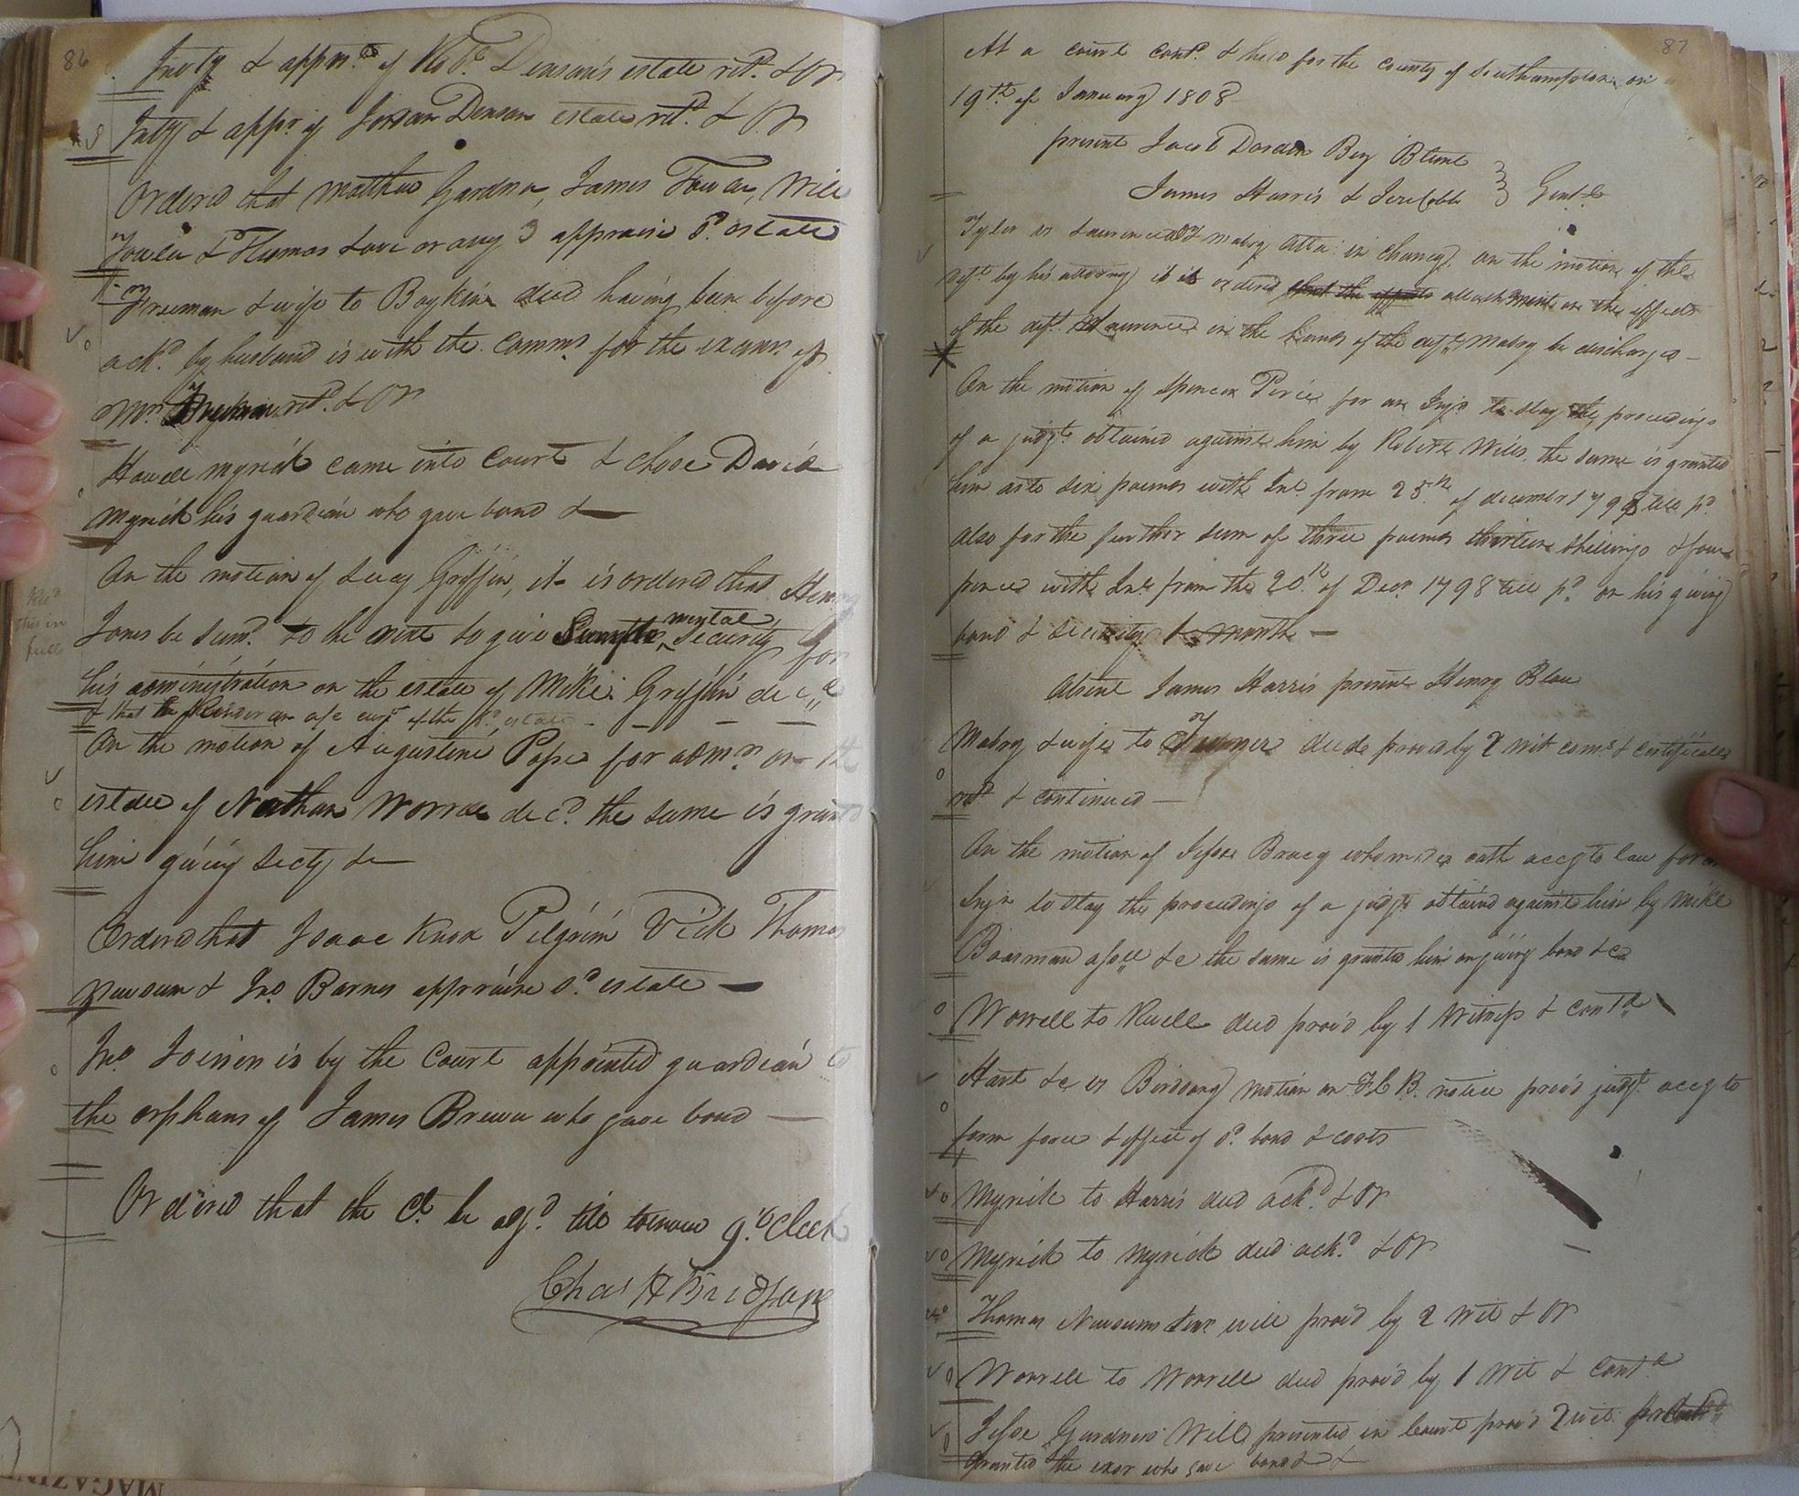 86
Invty & appr.d of Robt. Denson's estate retd. & OR
Invty & appr of Jordan Denson estate retd. & OR
Ordered that Matthew Gardner, James Fowler, Will
Fowler & Thomas Love or any 3 appraise sd. estate
Freeman & wife to Boykin deed having been before
ackd. by husband is with the Commn. for the exam. of
Mrs. Freeman retd. & OR
Howell Myrick came into Court & chose David
Myrick his guardian who gave bond &
On the motion of Lucy Griffin, it is ordered that Henry
Jones be sumd. to the next to give security for
his administration on the estate of Mike: Griffin decd
& that he render an a/c curt. of the sd. estate
On the motion of Augustine Pope for admn. on the
estate of Nathan Worrell decd. the same is granted
him giving secty &c
Ordered that Isaac Knox Pilgrim Vick Thomas
Newsum & Jno. Barnes appraise sd. estate
Jno. Joiner is by the Court appointed guardian to
the orphans of James Brewer who gave bond
Ordered that the Ct. be adjd. till tomorrow 9 oClock
Chas H Bridger
87
At a court contd. & held for the county of Southampton on
19th of January 1808
present Jacob Darden Ben Blunt
James Harris & Jere Cobb } Gent.
Tyler vs Lawrence & Mabry Atta: in Chancy. on the motion of the
deft. by his attorney it is ordered that the effects attachment on the effects
of the deft. Lawrence in the hands of the deft. Mabry be discharged
On the motion of Spencer Pierce for an Injn. to stay the proceedings
of a judgt. obtained against him by Robert Wills the same is granted
him as to six pounds with Int. from 25th of december 1798 till pd.
also for the further sum of three pounds thirteen shillings & four
pence with Int. from the 20th of Decr. 1798 till pd. on his giving
bond & security
Absent James Harris present Henry Blow
Mabry & wife to Turner deed provd by 2 wit coms & certificate
retd & continued
On the motion of Jesse Bracy who made oath accg to law for an
Injn. to stay the proceedings of a judgt. obtaind against him by Mike
Boarman assee &c the same is granted him on giving bond &c
Worrell to Ruell deed provd by 1 Witness & contd
Hart &c vs Birdsong motion on F.C.B. notice provd judgt. accg to
form force & effect of sd. bond & costs
Myrick to Harris deed ackd. & OR
Myrick to Myrick deed ackd. & OR
Thomas Newsums Senr will provd by 2 Wit & OR
Worrell to Worrell deed provd by 1 Wit & contd
Jesse Gardners Will presented in Court provd 2 wit
granted the exor who gave bond &
MAGAZIN